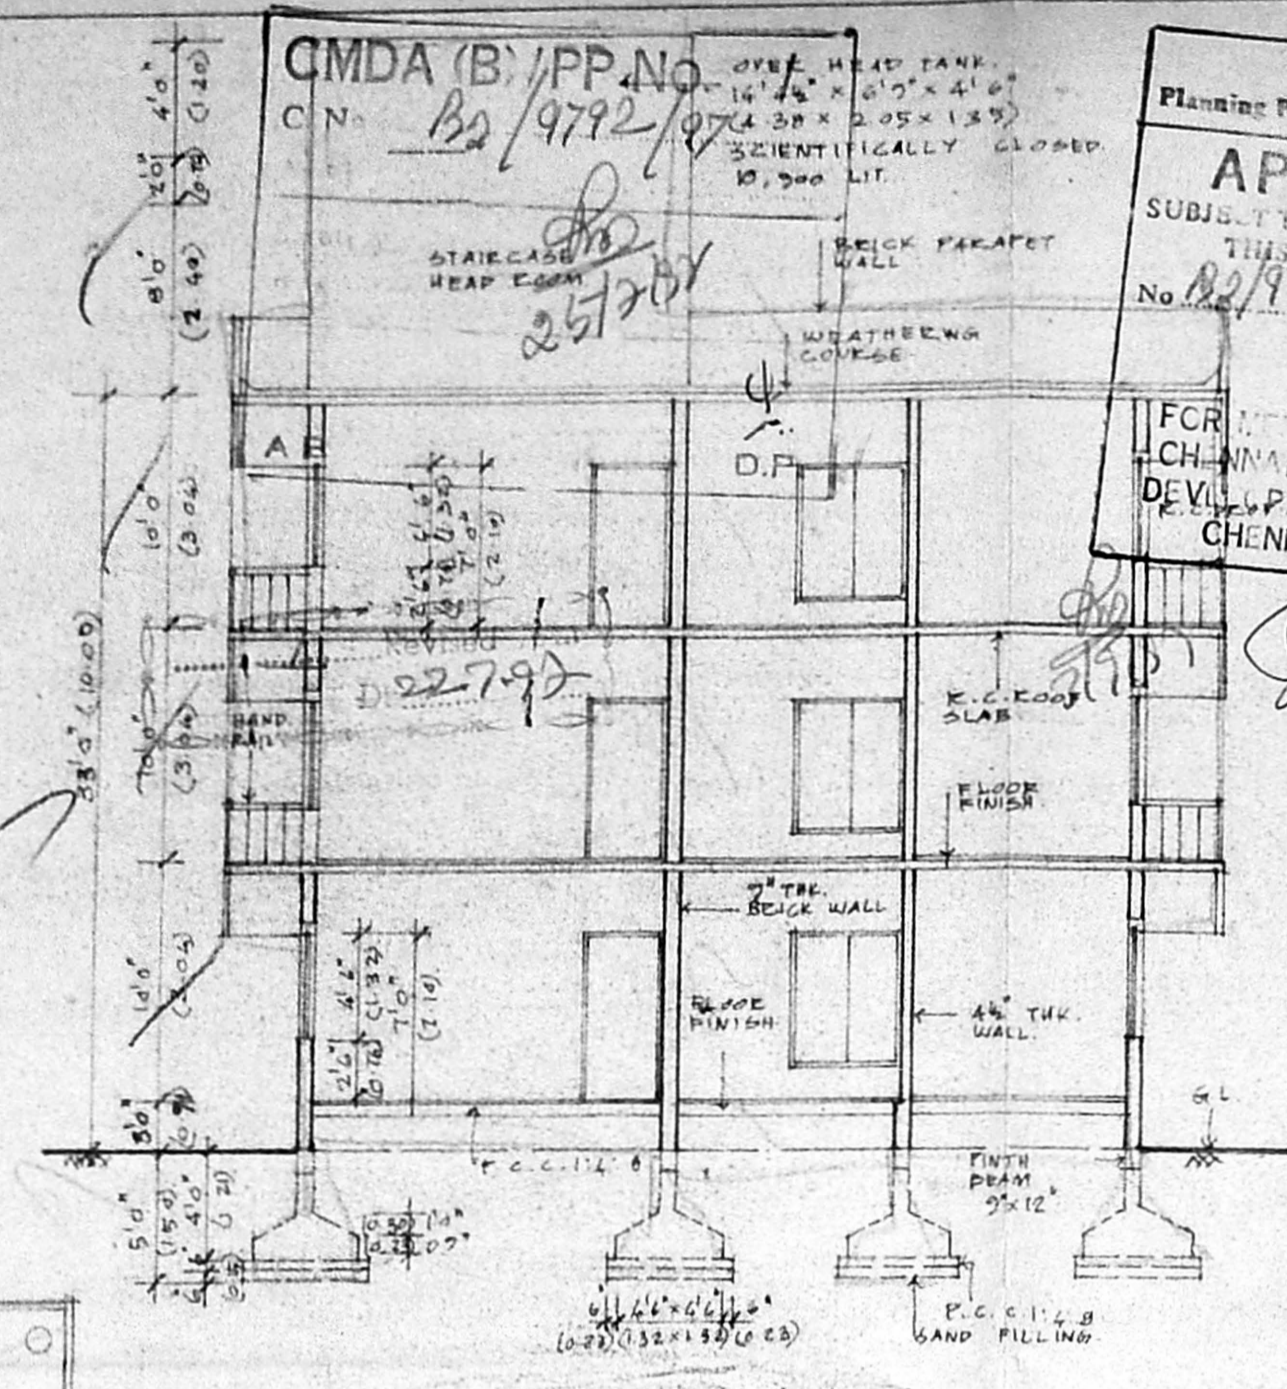 CMDA (B)/PP.No.
C No B2/9792/97
OVER HEAD TANK.
14'4½" x 6'9" x 4'6"
(4.38 x 2.05 x 1.35)
SCIENTIFICALLY CLOSED.
10,900 LIT.
STAIRCASE
HEAD ROOM
BRICK PARAPET
WALL
WEATHERING
COURSE
Planning P
AP
SUBJECT
THIS
No B2/9
FOR
CHENNA
DEVELOP
CHEN
4'0"
(1.20)
8'0"
(2.40)
10'0"
(3.04)
10'0"
(3.04)
10'0"
(3.04)
33'0" (10.00)
3'0"
5'0"
(1.50)
4'0"
A
D.P.
4'6"
(1.32)
7'0"
(2.10)
Revised
22.7.92
HAND
RAIL
R.C. ROOF
SLAB
FLOOR
FINISH
9" THK.
BRICK WALL
4'6"
(1.32)
7'0"
(2.10)
2'6"
FLOOR
FINISH
4½" THK.
WALL.
G.L.
P.C.C. 1:4:8
PINTH
BEAM
9"x12"
6" 4'6"x4'6" 6"
(0.23)(1.32x1.32)(0.23)
P.C.C. 1:4:8
SAND FILLING